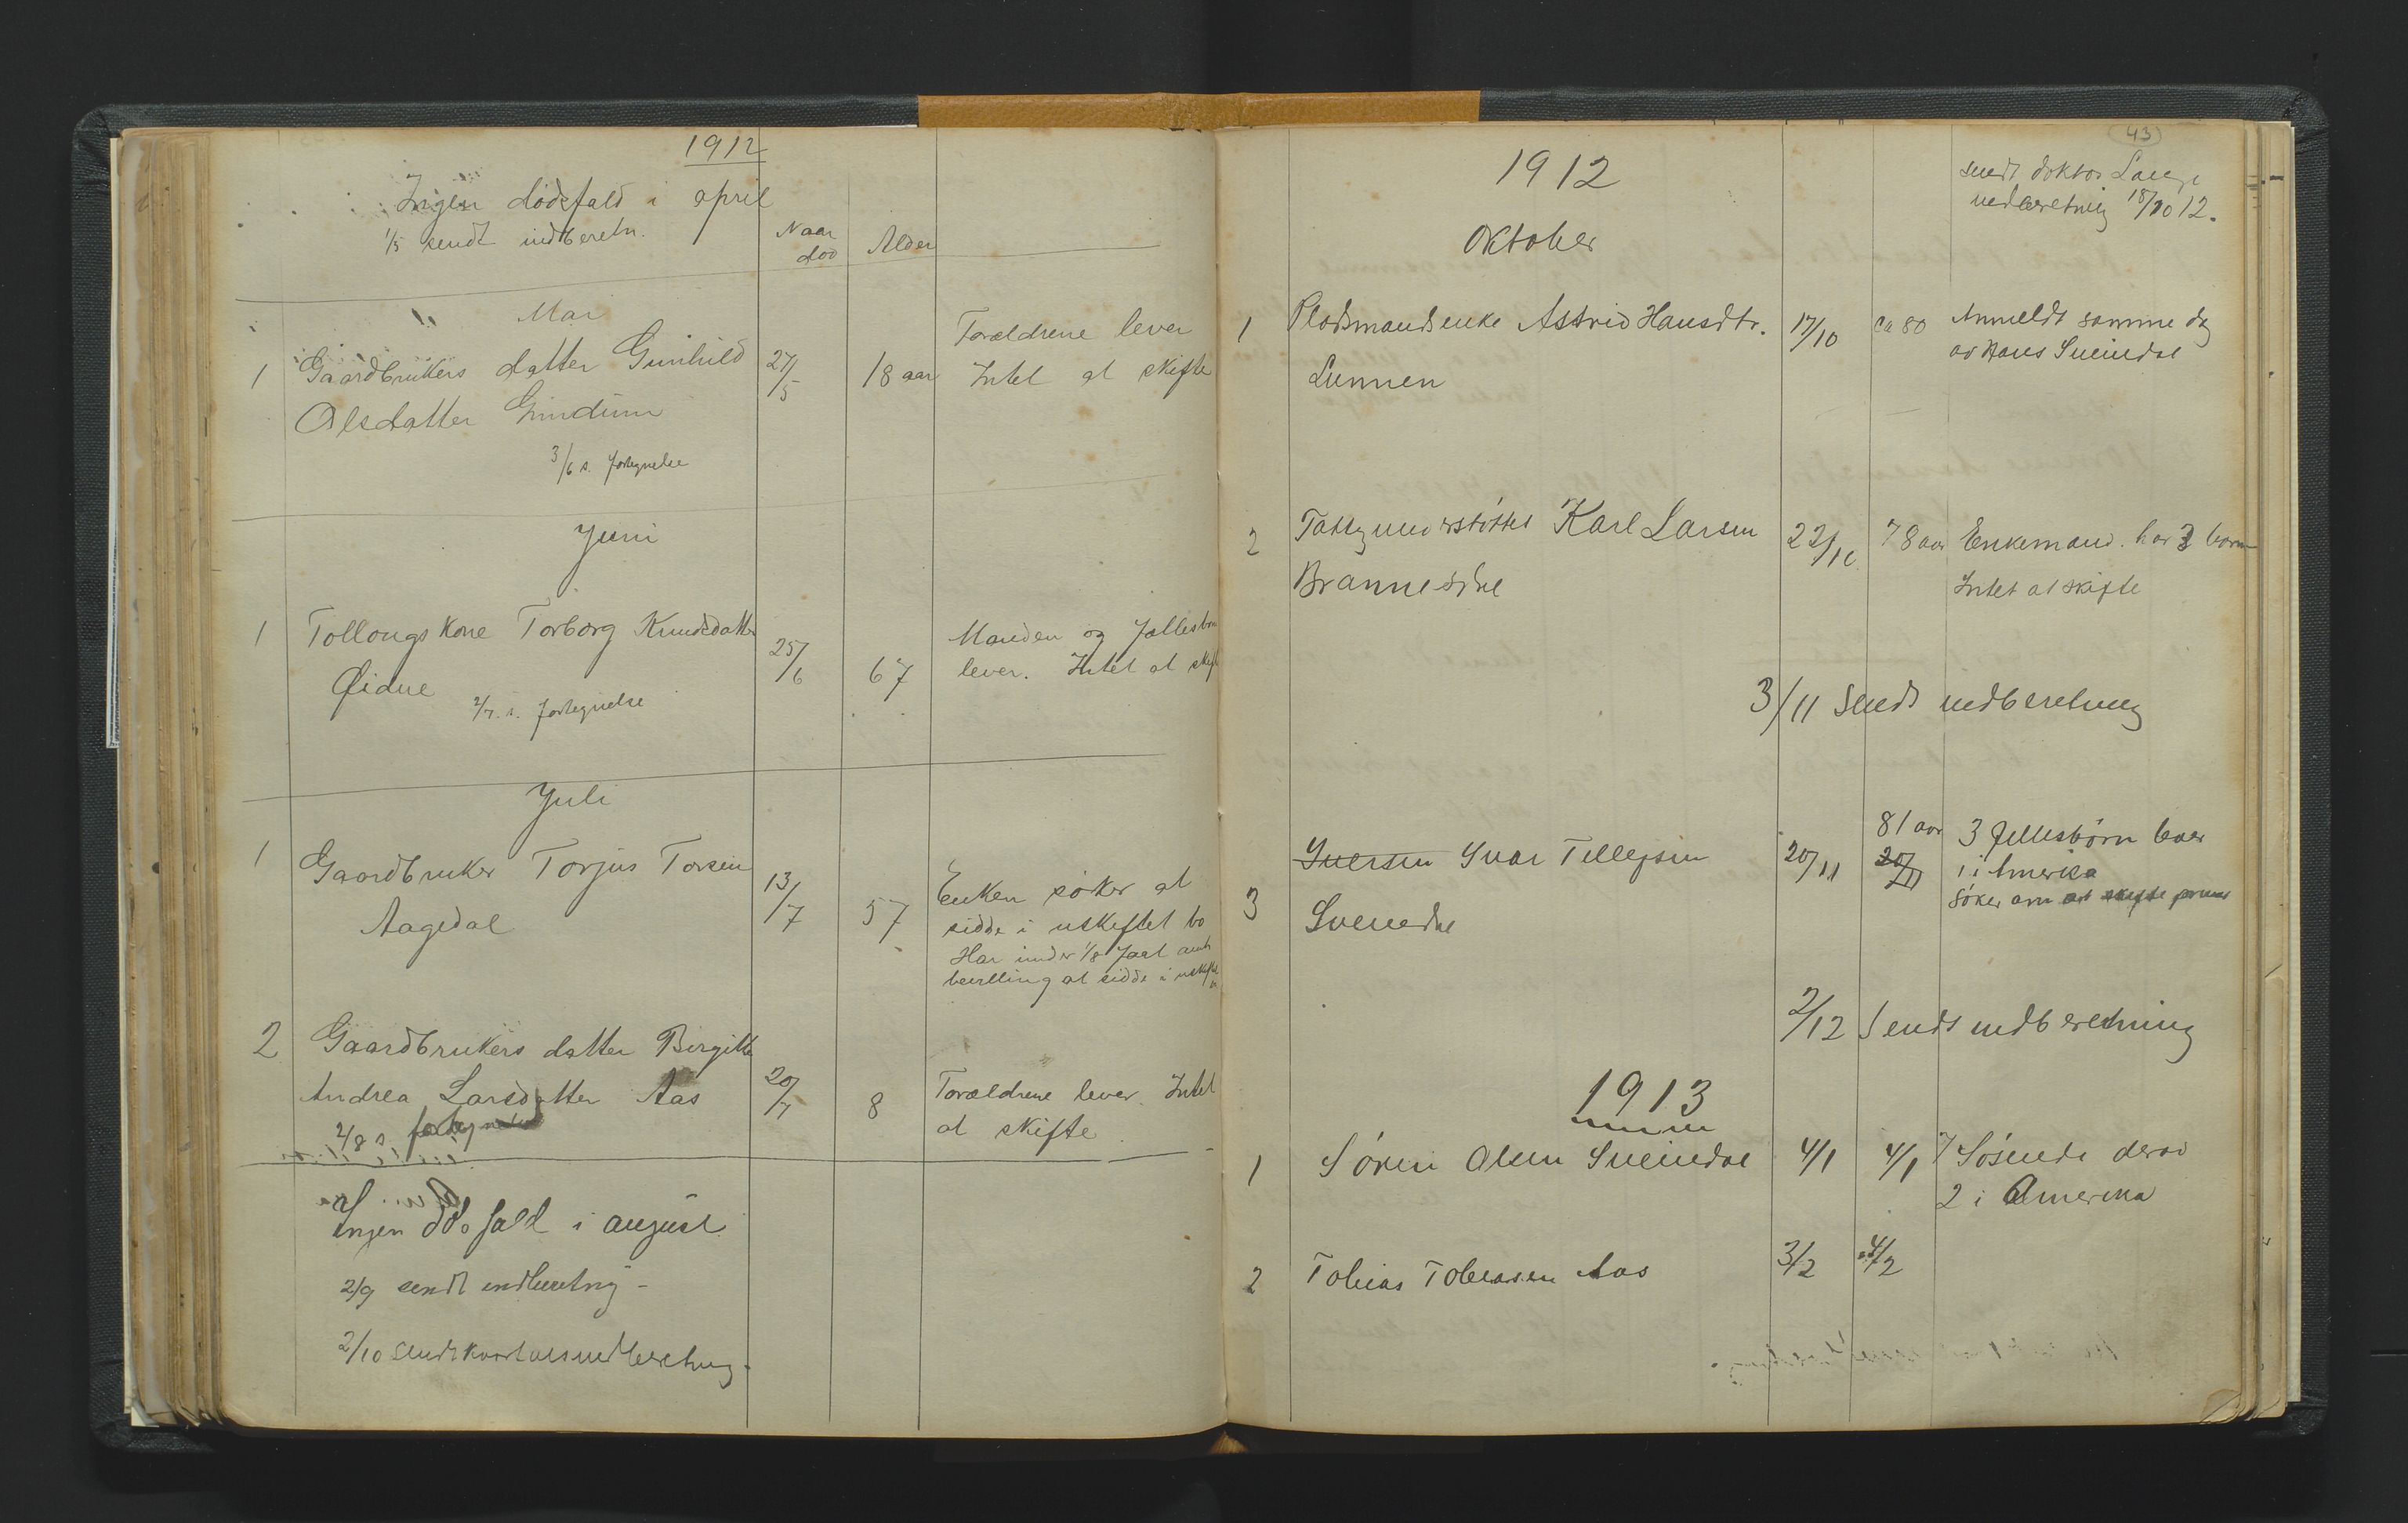 1912
Ingen dödsfald i april
1/5 sendt indberetn.
Naar
död
Alder
Mai
1 Gaardbrukers datter Gunhild
Olsdatter Grindum
27/5
18 aar
Forældrene lever
Intet at skifte
3/6 s. fortegnelse
Juni
1 Tollougs kone Torborg Knudsdatter
Øidne
25/6
67
Manden og fællesbørn
lever. Intet at skif
2/7. s. fortegnelse
Juli
1 Gaardbruker Torjus Torsen
Aagedal
13/7
57
Enken søker at
sidde i uskiftet bo
Har under 1/8 faat
bevilling at sidde i uskiftet
2 Gaardbrukers datter Birgitte
Andrea Larsdatter Aas
20/7
8
Forældrene lever. Intet
at skifte
2/8 s. fortegnelse
Ingen dödsfald i august
2/9 sendt indberetning -
2/10 sendt kvartalsindberetning.
43
1912
sendt doktor Lange
indberetning 18/10 12.
Oktober
1 Pladsmandsenke Astrid Hansdtr.
Lunnen
17/10
ca 80
Anmeldt samme dag
av Hans Sveindal
2 Fattigunderstöttet Karl Larsen
Brannesdal
22/10
78 aar
Enkemand. har 3 born
Intet at skifte
3/11 Sendt indberetning
3 Iversen Ivar Tellefsen
Sveindal
20/11
81 aar
20/11
3 fellesbörn lever
1 i Amerika
söker om at skifte privat
2/12 Sendt indberetning
1913
1 Sören Olsen Sveindal
4/1
4/1
7 Söskende derav
2 i Amerika
2 Tobias Tobiassen Aas
3/2
4/2